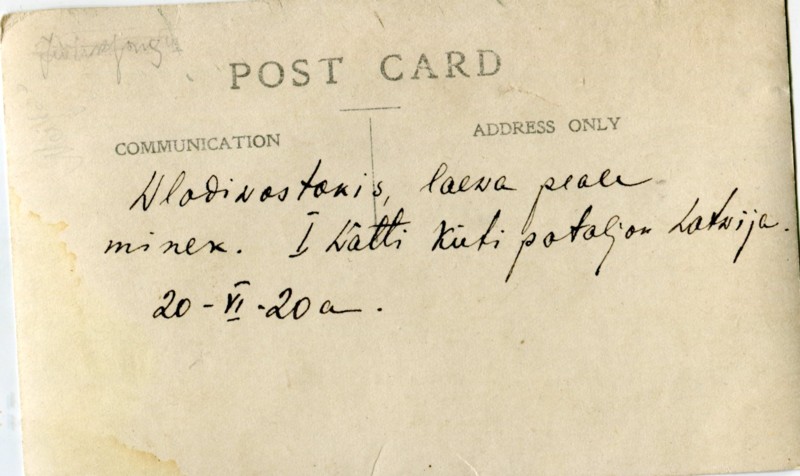 POST CARD
COMMUNICATION
ADDRESS ONLY
Wladiwostokis, laewa peale
minek. I Lätti Küti pataljon Latwija.
20-VI-20a.